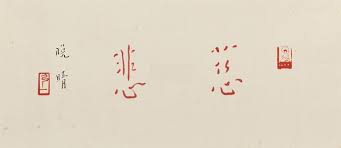 慈悲
晚晴